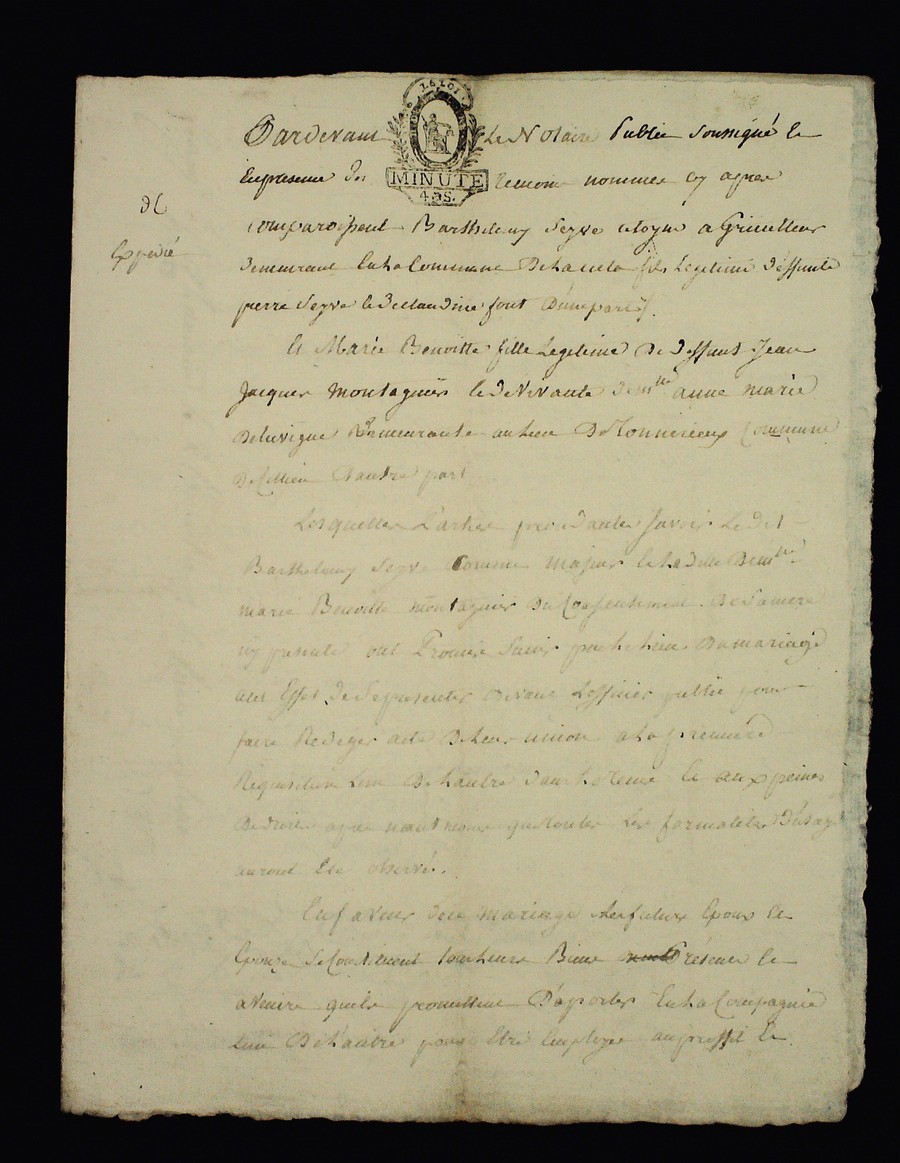 LOI
Pardevant Le Notaire Public Soussigné Et
MINUTE
En presence des temoins nommes cy apres
4 DS.
comparoissent Barthelemy Seyve citoyen
expedié
demeurant En La Commune De fils Legitime Deffunts
pierre Seyve Et De claudine font D'une part.
Et Marie Benoitte fille Legitime De Deffunt Jean
Jacques Montagnier Et De Vivante anne marie
Delavigne Demeurante au lieu De Commune
D'autre part
Lesquelles Parties procedantes Savoir Ledit
Barthelemy Seyve Comme majeur Et La ditte
marie Benoitte montagnier Du Consentement De Sa mere
cy presente ont Promis S'unir par Le Lien Du mariage
aux Effet De Se presenter Devant L'officier public pour
faire Rediger acte De Leur union a La premiere
Requisition L'un De L'autre Et aux peines
De Droit apres neantmoins que toutes Les formalités D'usage
auront Eté observé.
En faveur du mariage Les futurs Epoux Et
Epouze Se Constituent tous Leurs Biens Présents Et
avenirs qu'ils promettent D'aporter En La Compagnie
L'un De L'autre pour Etre Employés au proffit Et